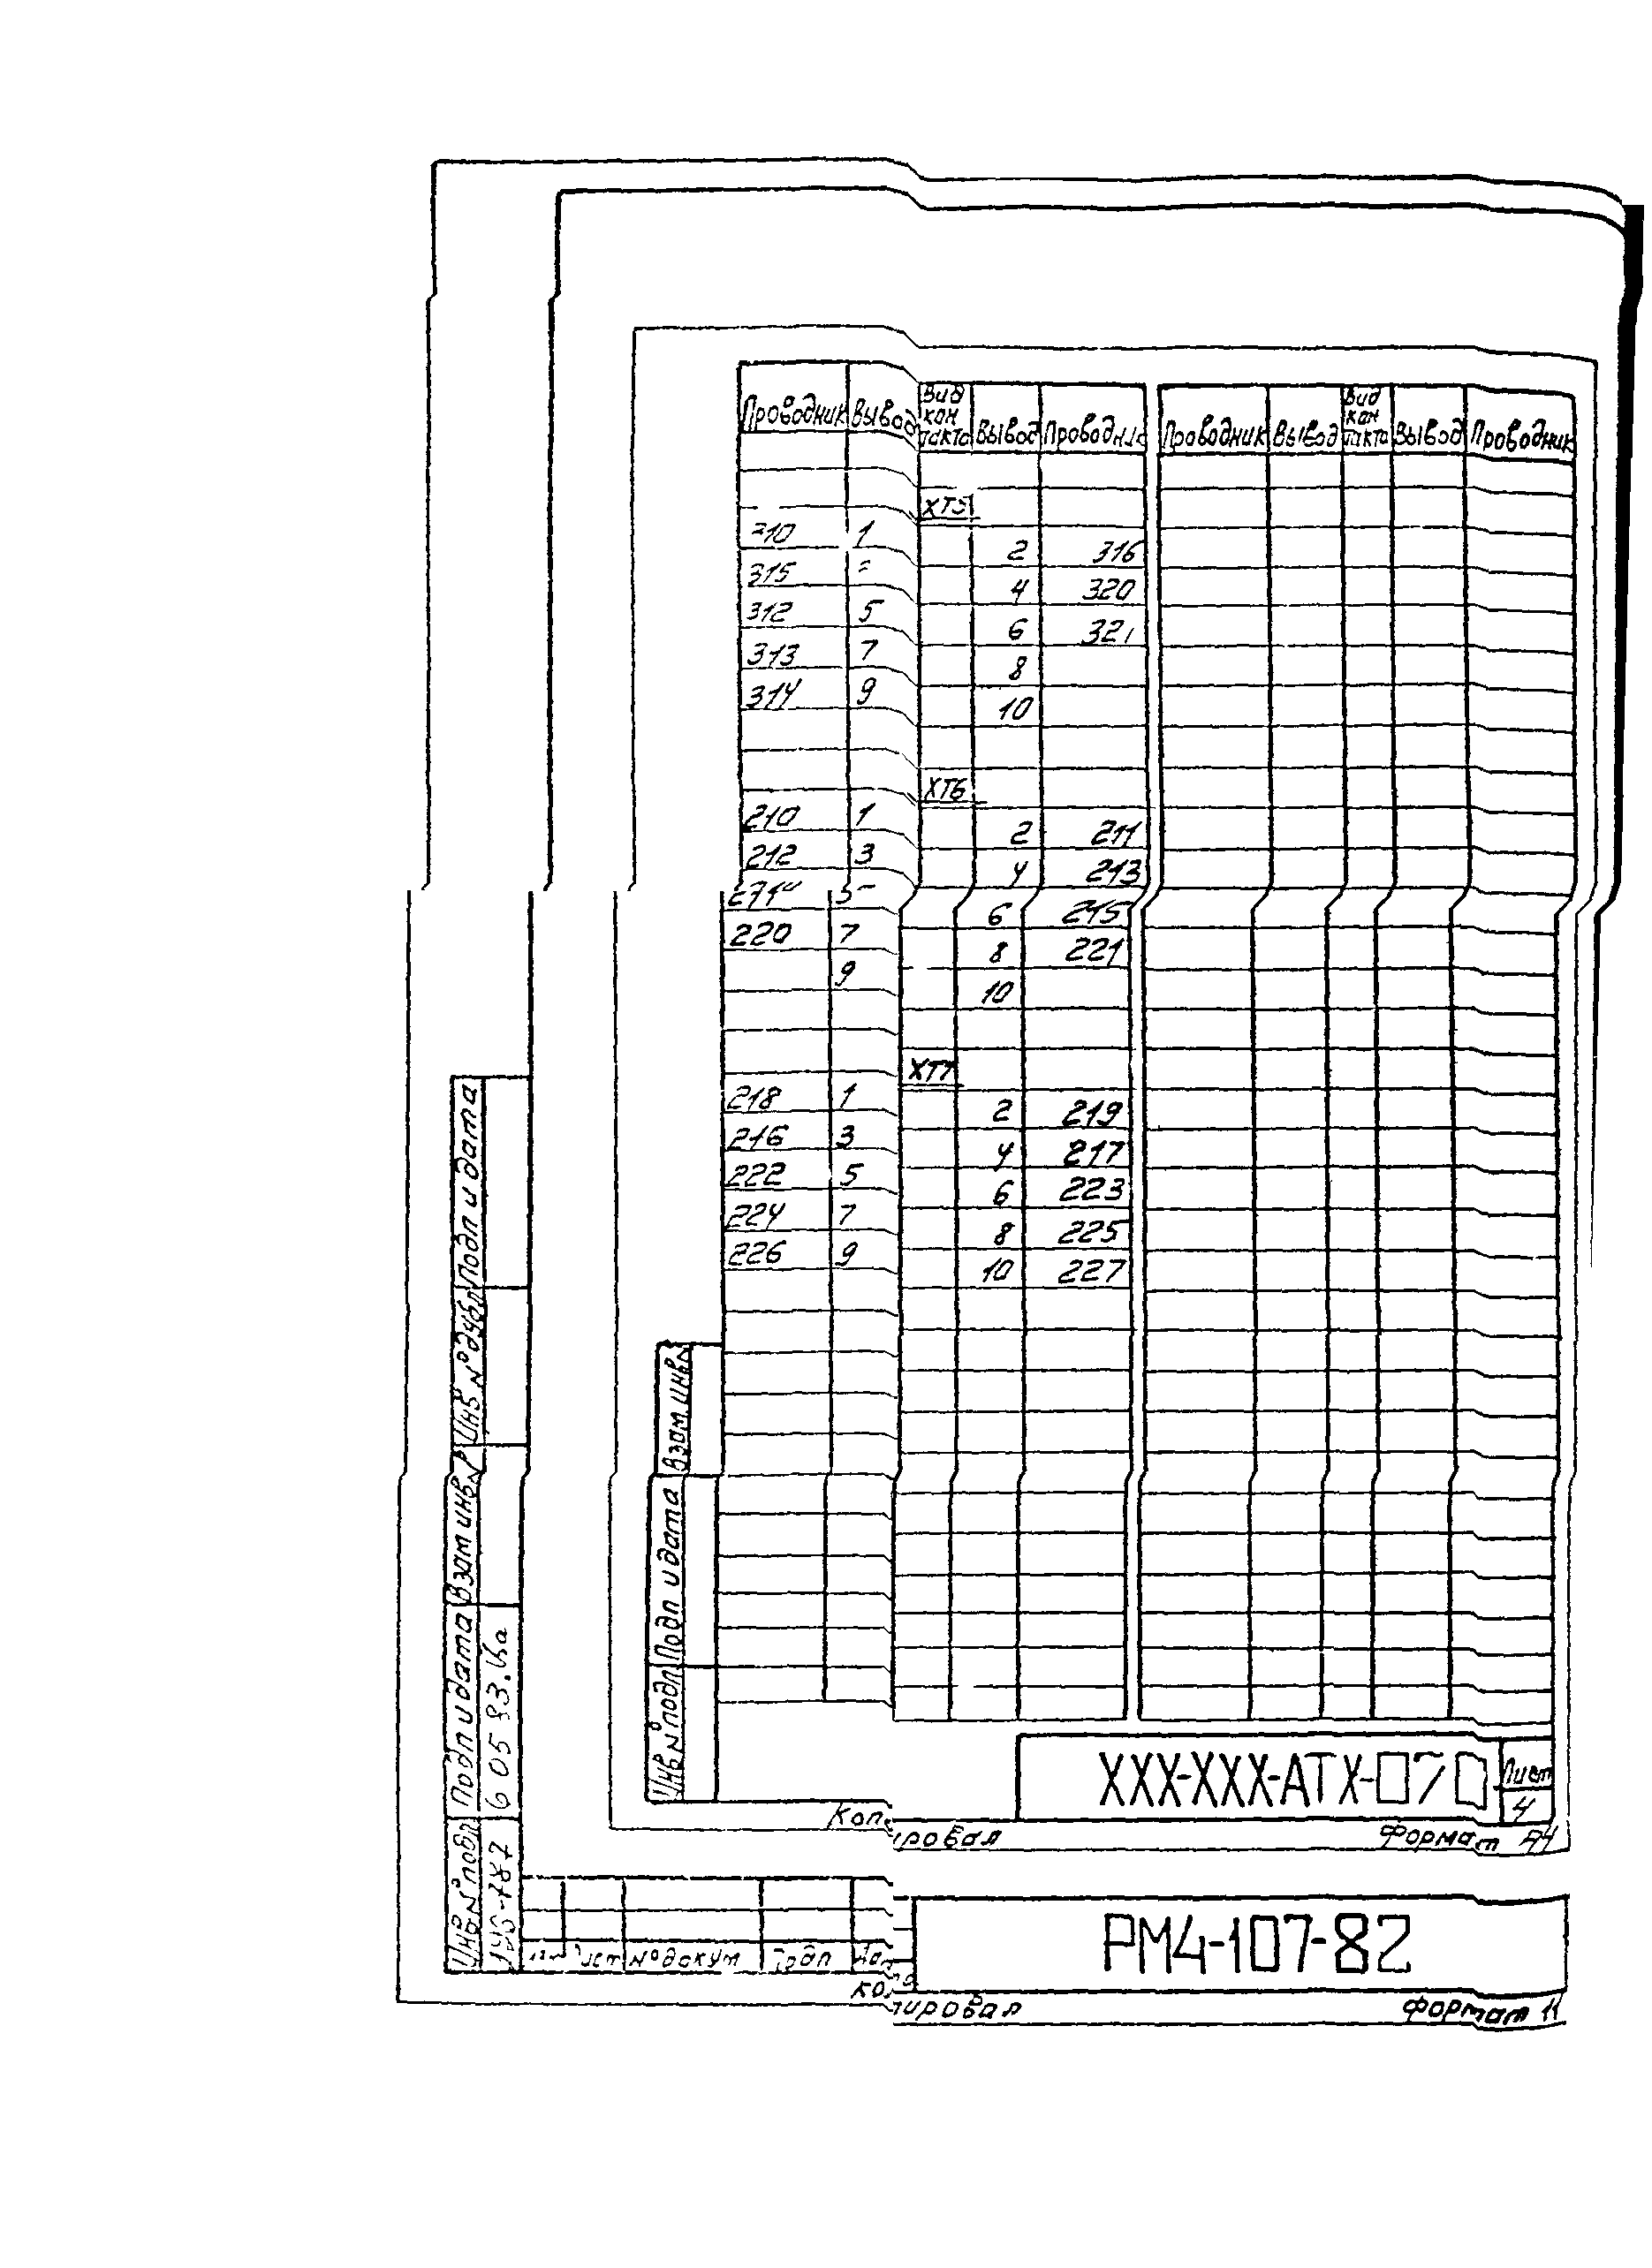 Проводник Вывод Вид контакта Вывод Проводник Проводник Вывод Вид контакта Вывод Проводник
310 1
2 316
315
4 320
312 5
6 321
313 7
8
314 9
10
ХТ6
210 1
2 211
212 3
4 213
214 5
6 215
220 7
8 221
9
10
ХТ7
218 1
2 219
216 3
4 217
222 5
6 223
224 7
8 225
226 9
10 227
Подп и дата
Инв № дубл
Взам инв №
Подп и дата
Инв № подл
Взам. инв №
Подп и дата
Инв № подл
ХХХ-ХХХ-АТХ-070
Лист
4
Копировал Формат А4
Лист № докум Подп
РМ4-107-82
Копировал Формат 11